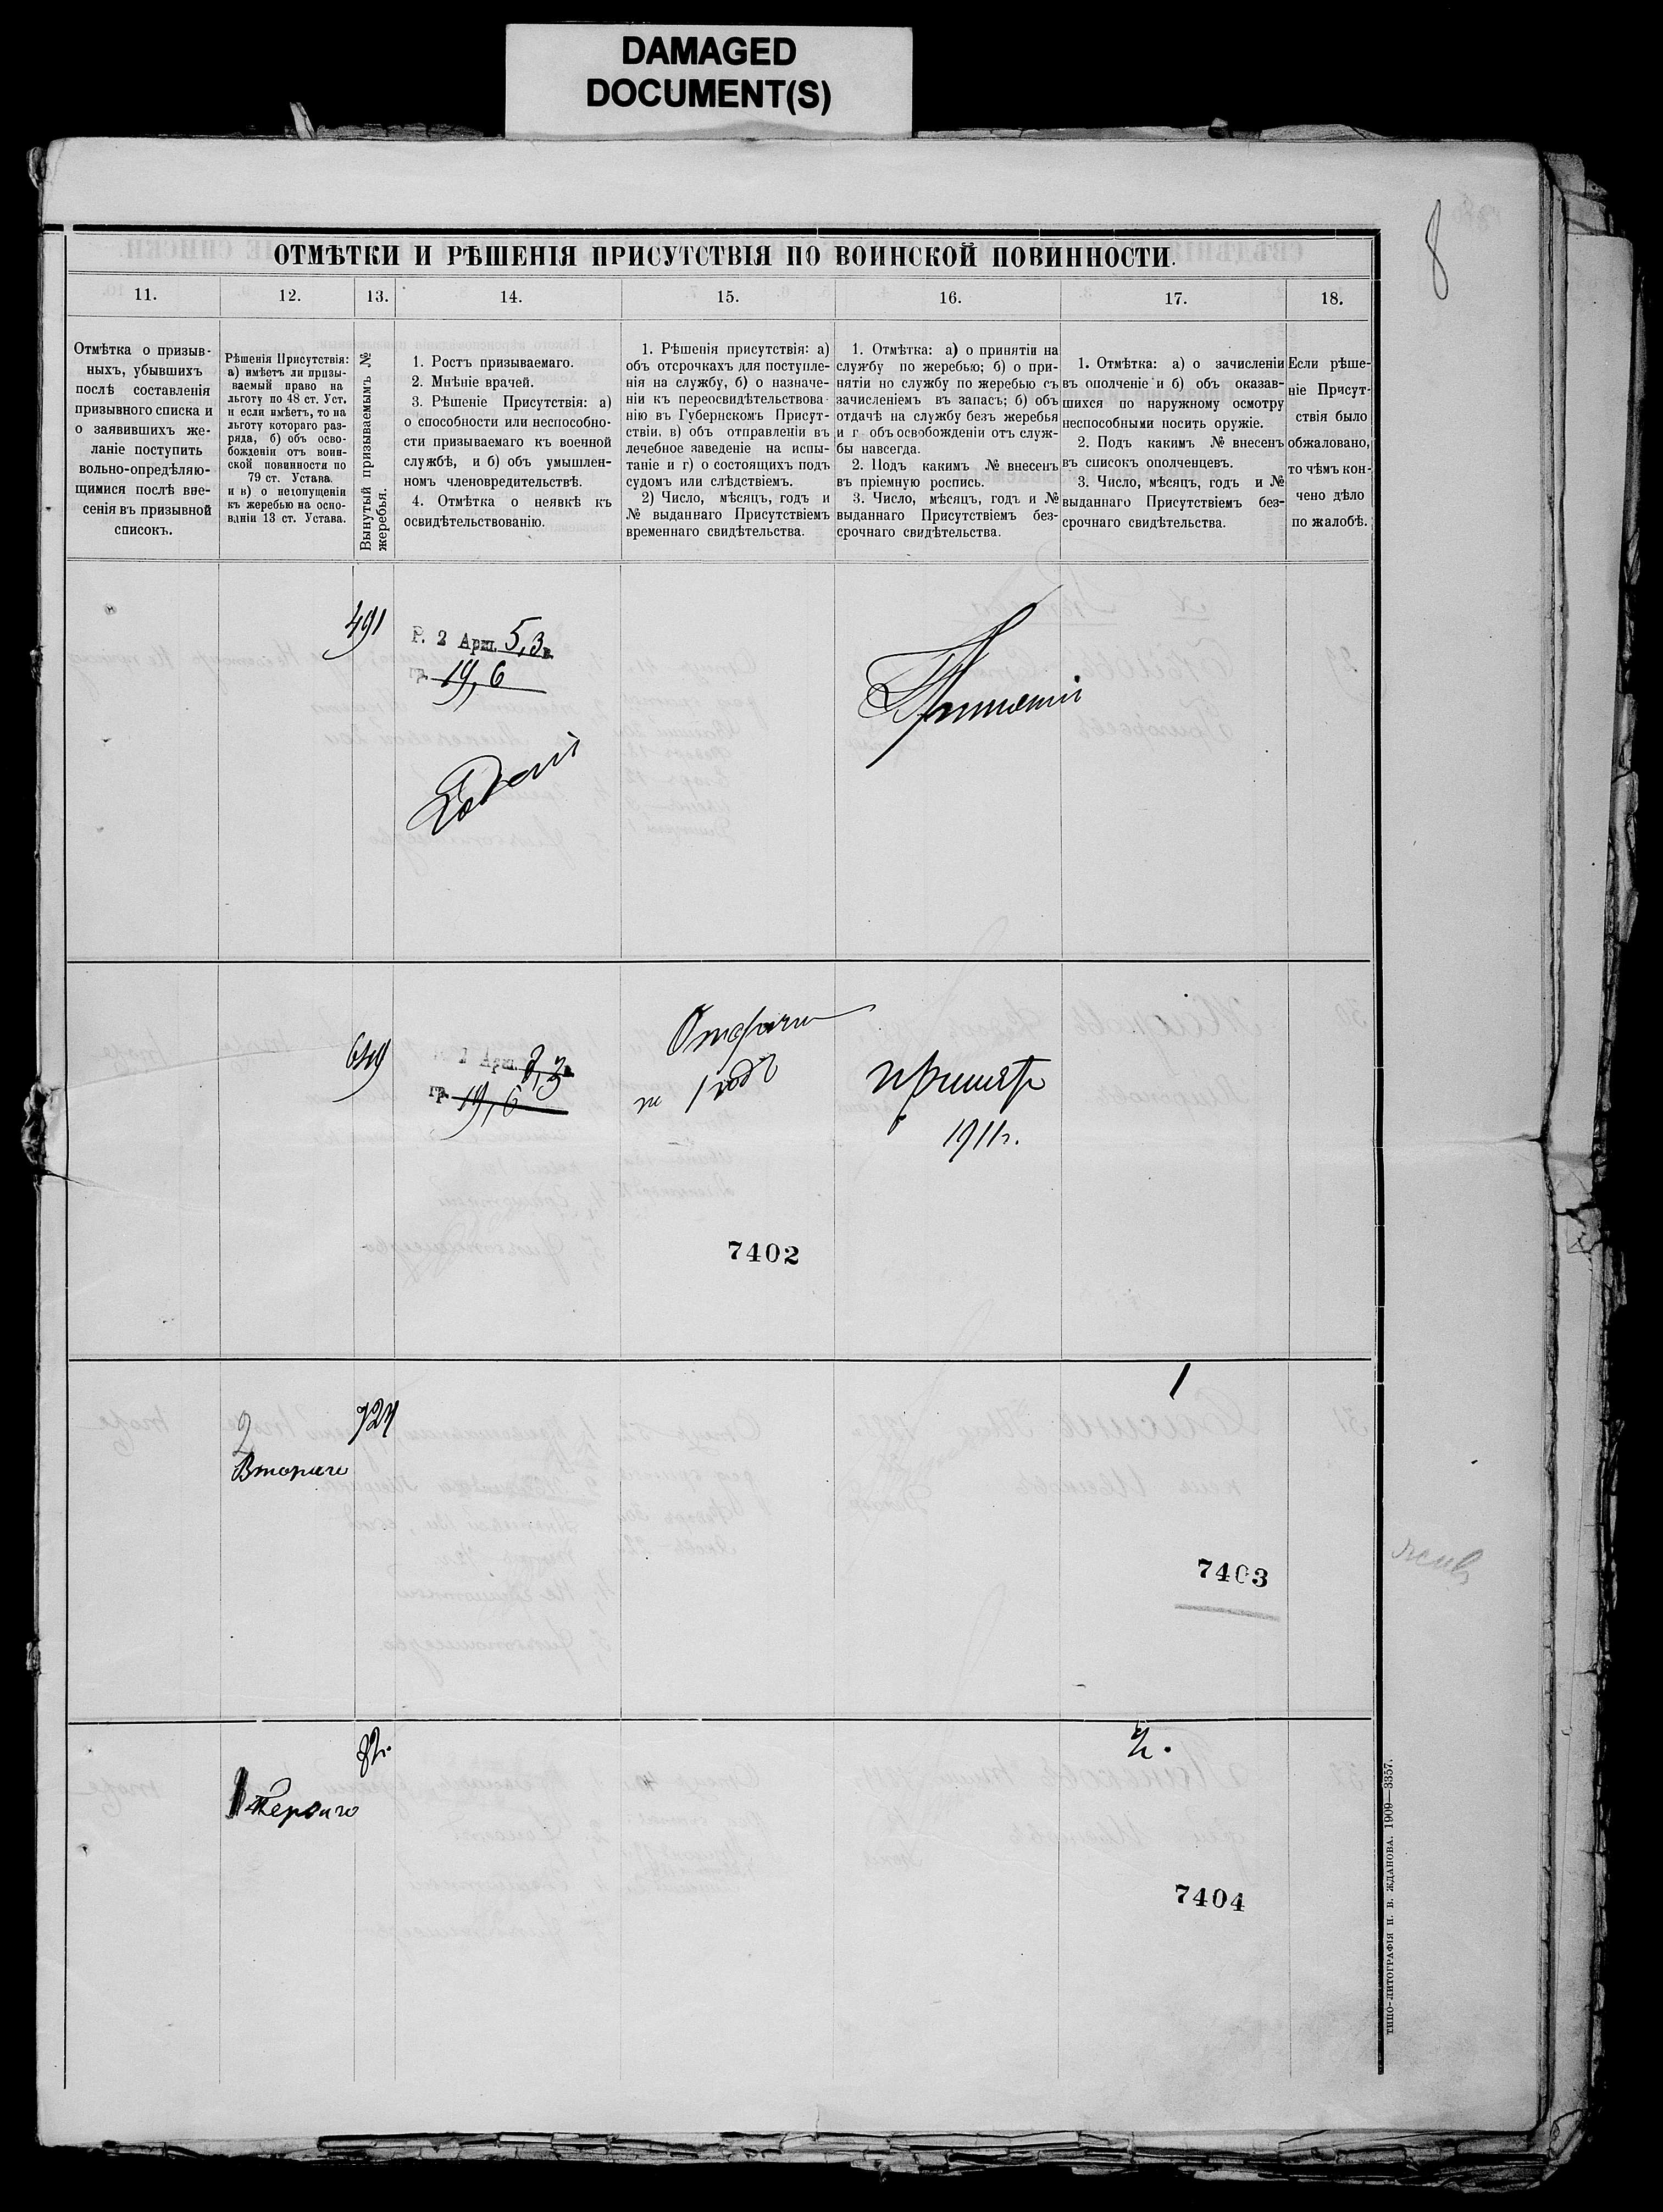 DAMAGED
DOCUMENT(S)
8
ОТМѢТКИ И РѢШЕНІЯ ПРИСУТСТВІЯ ПО ВОИНСКОЙ ПОВИННОСТИ.
11.
12.
13.
14.
15.
16.
17.
18.
Отмѣтка о призыв-
ныхъ, убывшихъ
послѣ составленія
призывного списка и
о заявившихъ же-
ланіе поступить
вольно-опредѣляю-
щимися послѣ вне-
сенія въ призывной
списокъ.
Рѣшенія Присутствія:
а) имѣетъ ли призы-
ваемый право на
льготу по 48 ст. Уст.
и если имѣетъ, то на
льготу котораго раз-
ряда, б) объ осво-
божденіи отъ воин-
ской повинности по
79 ст. Устава.
и в) о недопущеніи
къ жеребью на осно-
ваніи 13 ст. Устава.
Вынутый призываемымъ №
жеребья.
1. Ростъ призываемаго.
2. Мнѣніе врачей.
3. Рѣшеніе Присутствія: а)
о способности или неспособно-
сти призываемаго къ военной
службѣ, и б) объ умышлен-
номъ членовредительствѣ.
4. Отмѣтка о неявкѣ къ
освидѣтельствованію.
1. Рѣшенія присутствія: а)
объ отсрочкахъ для поступле-
нія на службу, б) о назначе-
ніи къ переосвидѣтельствова-
нію въ Губернскомъ Присут-
ствіи, в) объ отправленіи въ
лечебное заведеніе на испы-
таніе и г) о состоящихъ подъ
судомъ или слѣдствіемъ.
2) Число, мѣсяцъ, годъ и
№ выданнаго Присутствіемъ
временнаго свидѣтельства.
1. Отмѣтка: а) о принятіи на
службу по жеребью; б) о при-
нятіи но службу по жеребью съ
зачисленіемъ въ запасъ; б) объ
отдачѣ на службу безъ жеребья
и г объ освобожденіи отъ служ-
бы навсегда.
2. Подъ какимъ № внесенъ
въ пріемную роспись.
3. Число, мѣсяцъ, годъ и №
выданнаго Присутствіемъ без-
срочнаго свидѣтельства.
1. Отмѣтка: а) о зачисленіи
въ ополченіе и б) объ оказав-
шихся по наружному осмотру
неспособными носить оружіе.
2. Подъ какимъ № внесенъ
въ списокъ ополченцевъ.
3. Число, мѣсяцъ, годъ и №
выданнаго Присутствіемъ без-
срочнаго свидѣтельства.
Если рѣше-
ніе Присут-
ствія было
обжаловано,
то чѣмъ кон-
чено дѣло
по жалобѣ.
491
Р. 2 Арш. 5,3 в.
гр. 19,6
Годенъ
Принятъ
649
Арш. 3 в.
гр. 19,6
Отсрочка
на 1 годъ
принятъ
1911 г.
7402
724
2
Втораго
1
7403
Перваго
2.
7404
ТИПО-ЛИТОГРАФІЯ И. В. ЖДАНОВА. 1909—3357.